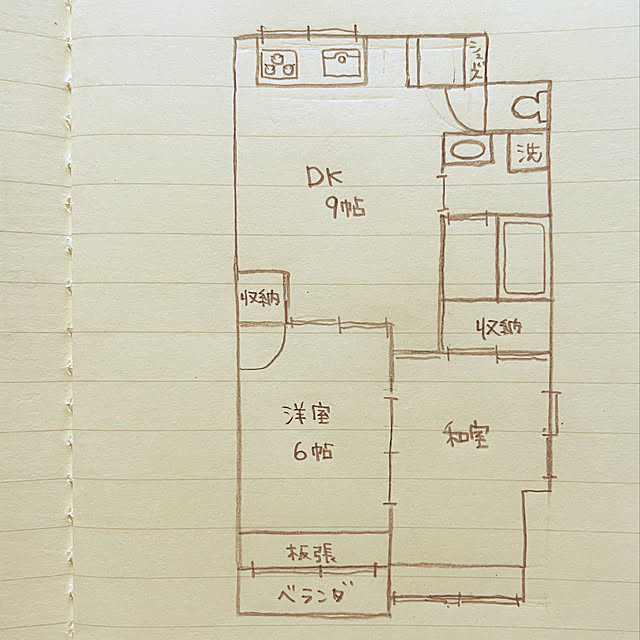 シューズ
洗
DK
9帖
収納
収納
洋室
6帖
和室
板張
ベランダ